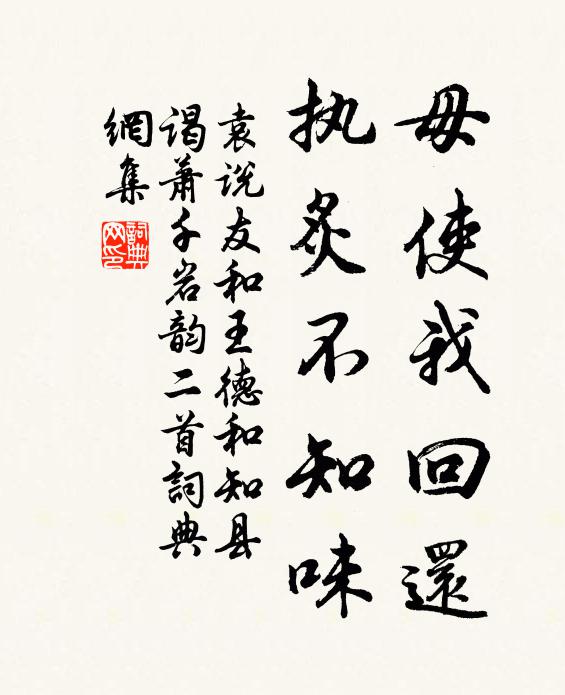 毋使我回還
执炙不知味
袁说友和王德和知县
谒萧千岩韵二首詞典
網集
詞典網印